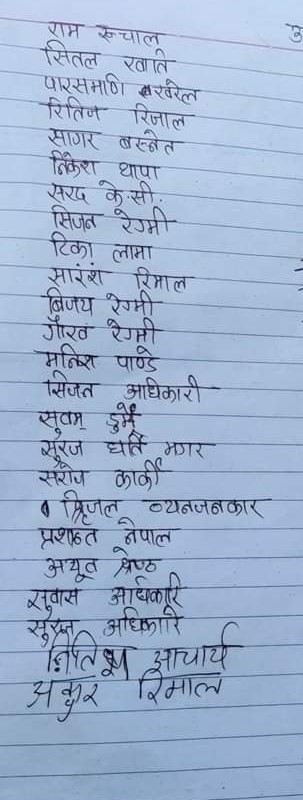 राम रुचाल
सितल खाति
पारसमणि खरेल
रितिज रिजाल
सागर बस्नेत
निकेश थापा
सरद के.सी.
सिजन रेग्मी
टिका लामा
सारंश रिमाल
बिजय रेग्मी
गौरव रेग्मी
मनिश पाण्डे
सिजन अधिकारी
सुवम्
सुरज घर्ति मगर
सरोज कार्की
श्रिजल व्यनजनकार
प्रशान्त नेपाल
अच्यूत श्रेष्ठ
सुवास अधिकारि
सुरज अधिकारि
नितिश आचार्य
अकुर रिमाल